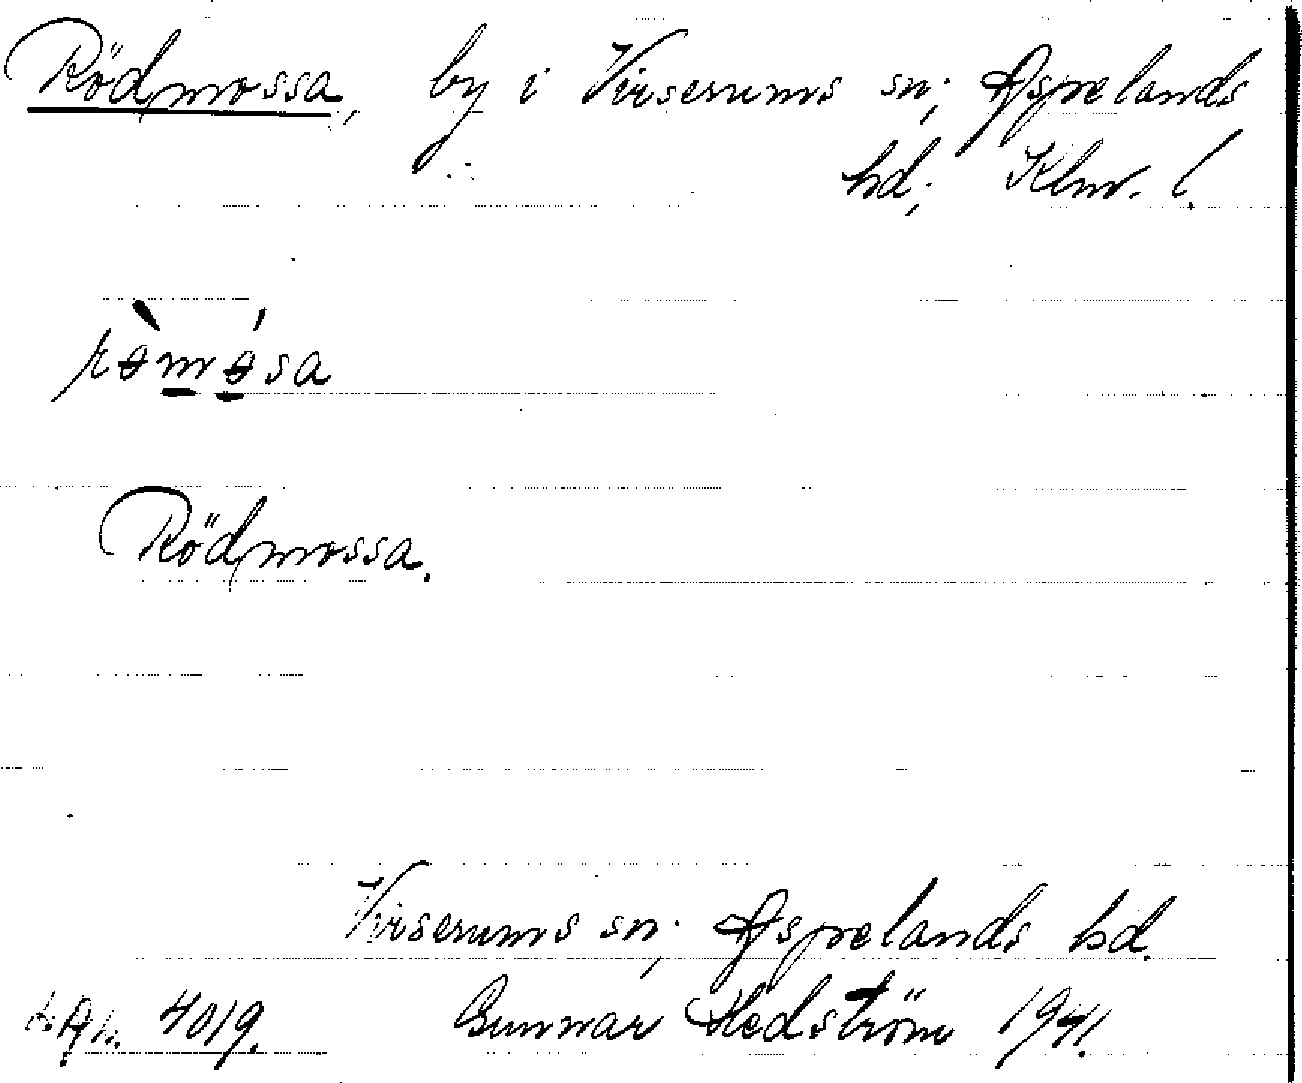 Rödmossa, by i Virserums sn; Aspelands
hd; Klm. l.
rø̀mǿsa
Rödmossa.
Virserums sn; Aspelands hd.
4019. Gunnar Hedström 1941.